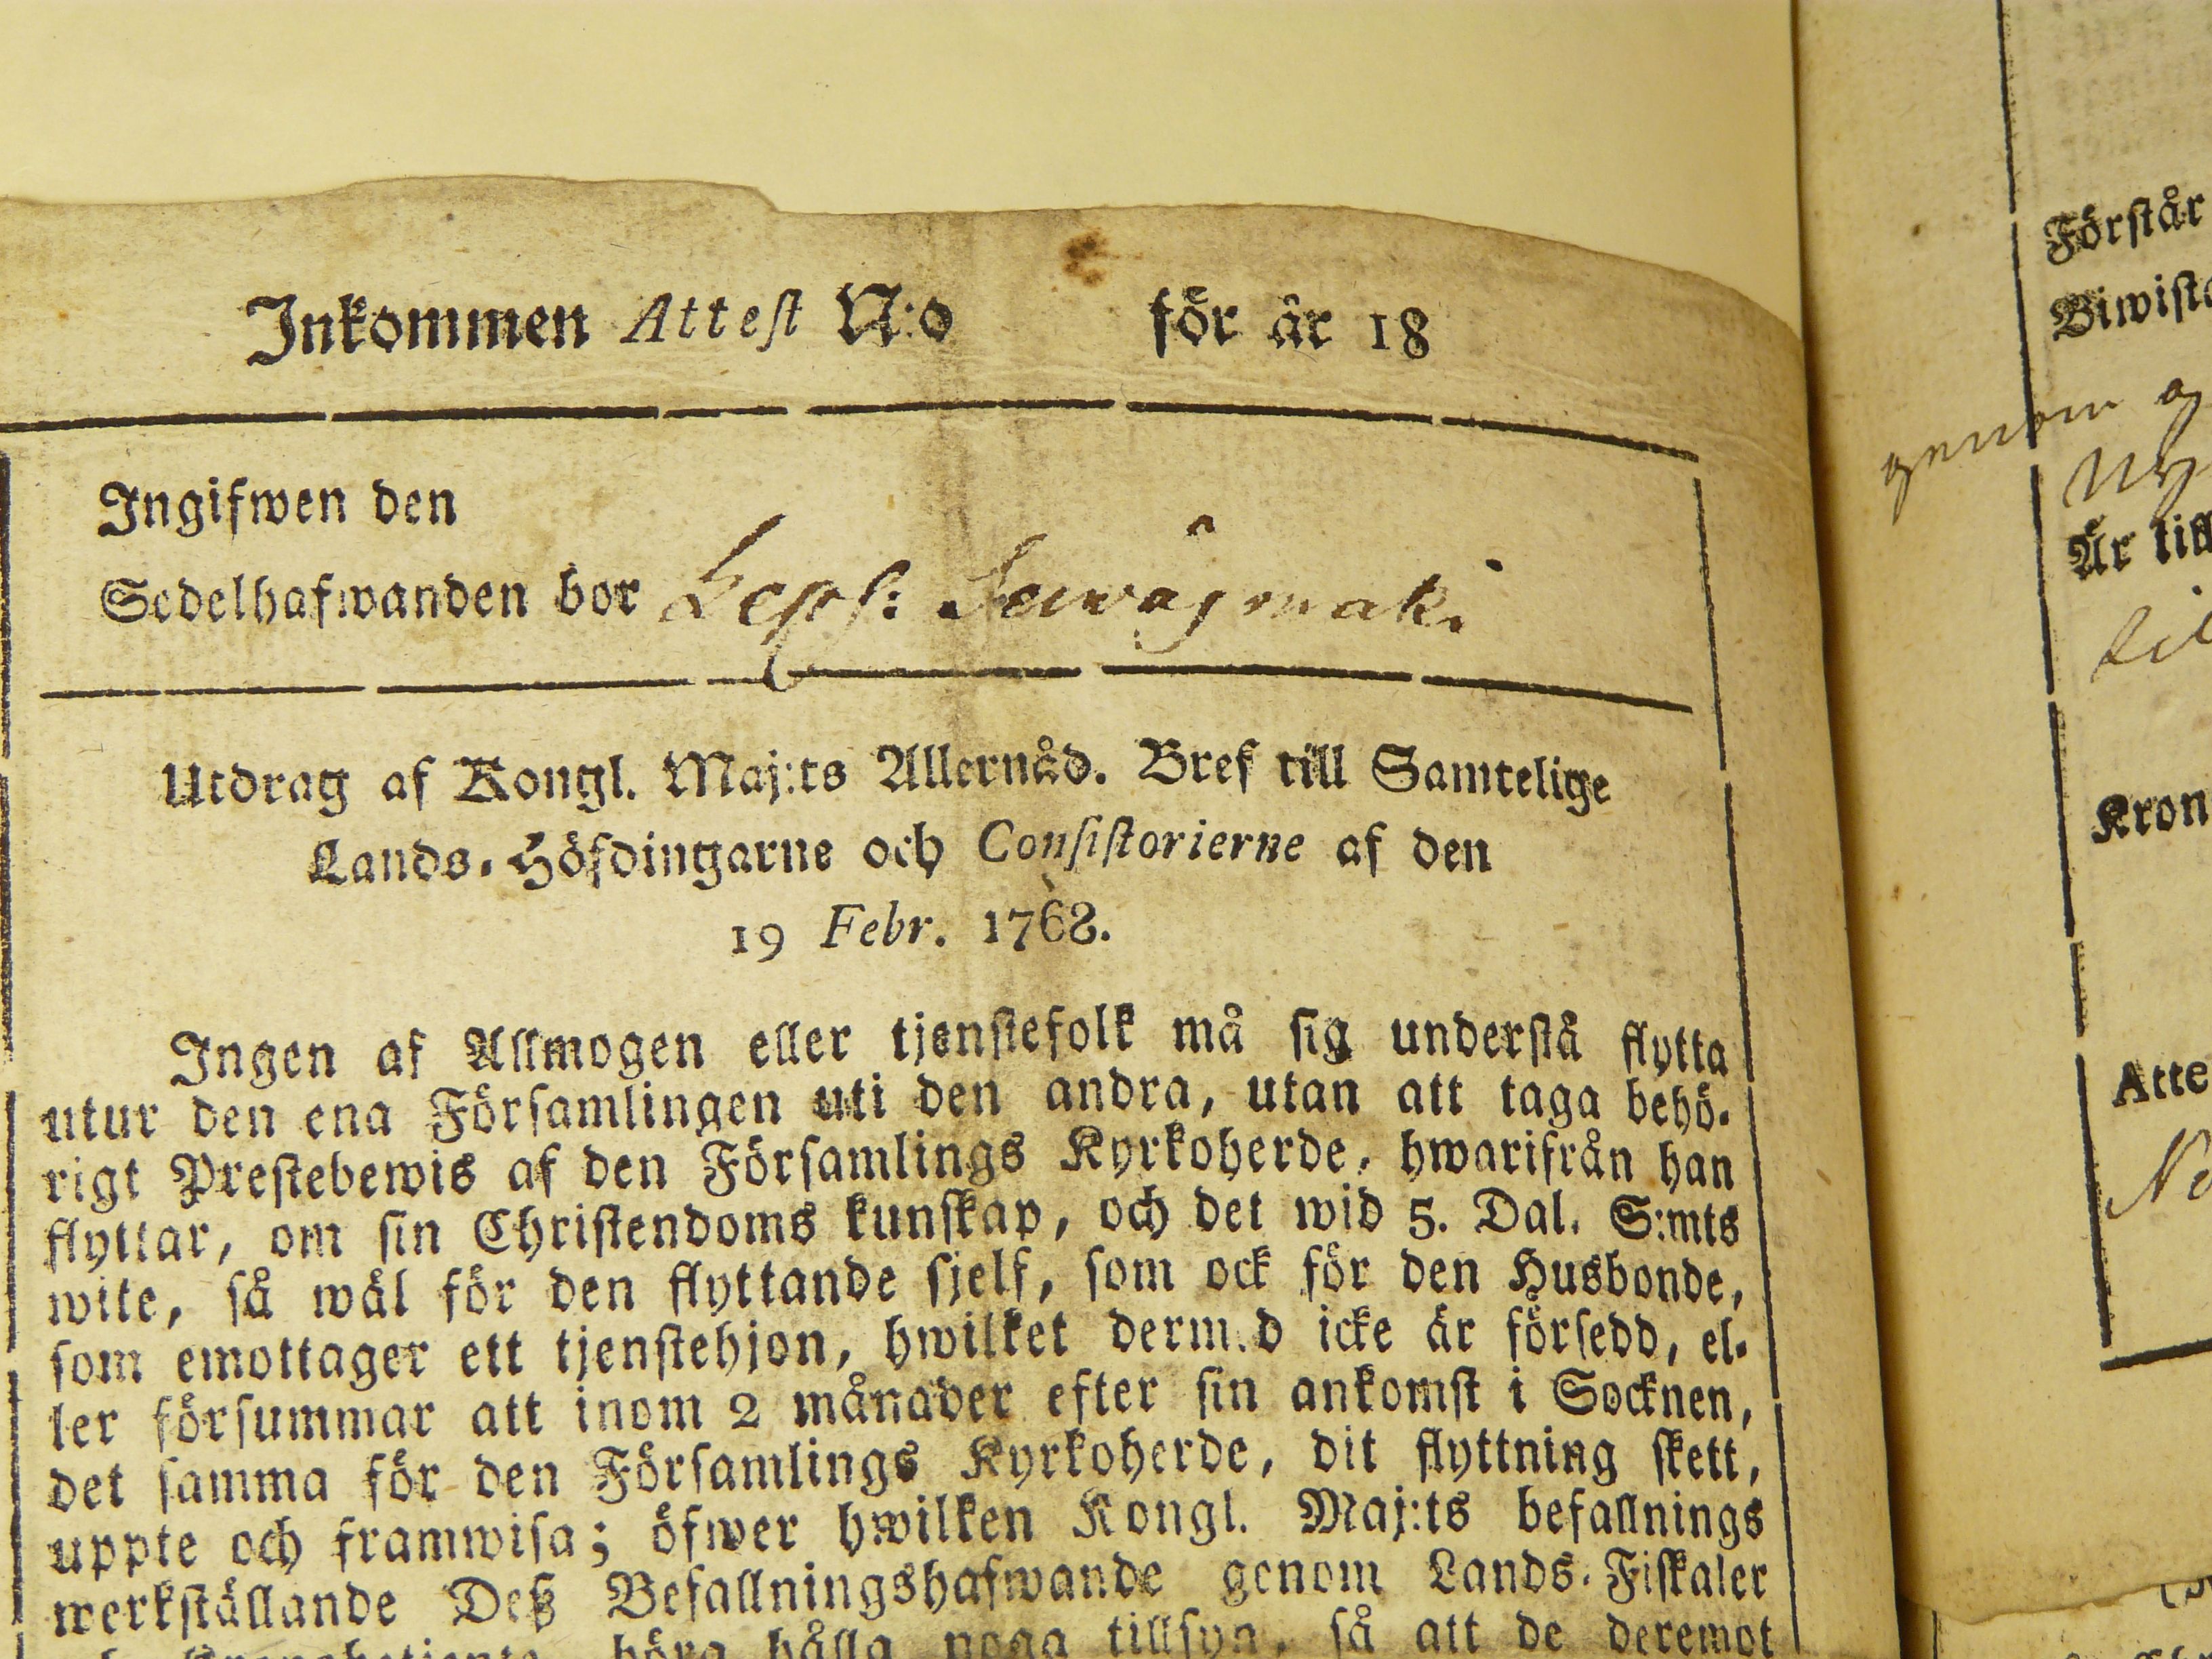 Inkommen Attest N:o för år 18
Ingifwen den
Sedelhafwanden bor
Utdrag af Kongl. Maj:ts Allernåd. Bref till Samtelige
Lands-Höfdingarne och Consistorierne af den
19 Febr. 1768.
Ingen af Allmogen eller tjenstefolk må sig understå flytta
utur den ena Församlingen uti den andra, utan att taga behö-
rigt Prestebewis af den Församlings Kyrkoherde, hwarifrån han
flyttar, om sin Christendoms kunskap, och det wid 5. Dal. S:mts
wite, så wäl för den flyttande sjelf, som ock för den Husbonde,
som emottager ett tjenstehjon, hwilket derm.d icke är försedd, el-
ler försummar att inom 2 månader efter sin ankomst i Socknen,
det samma för den Församlings Kyrkoherde, dit flyttning skett,
uppte och framwisa; öfwer hwilken Kongl. Maj:ts befallnings
werkställande Deß Befallningshafwande genom Lands-Fiskaler
böra hålla noga tillsyn, så att de deremot
Förstår
genom
Är till
Kron
Atte